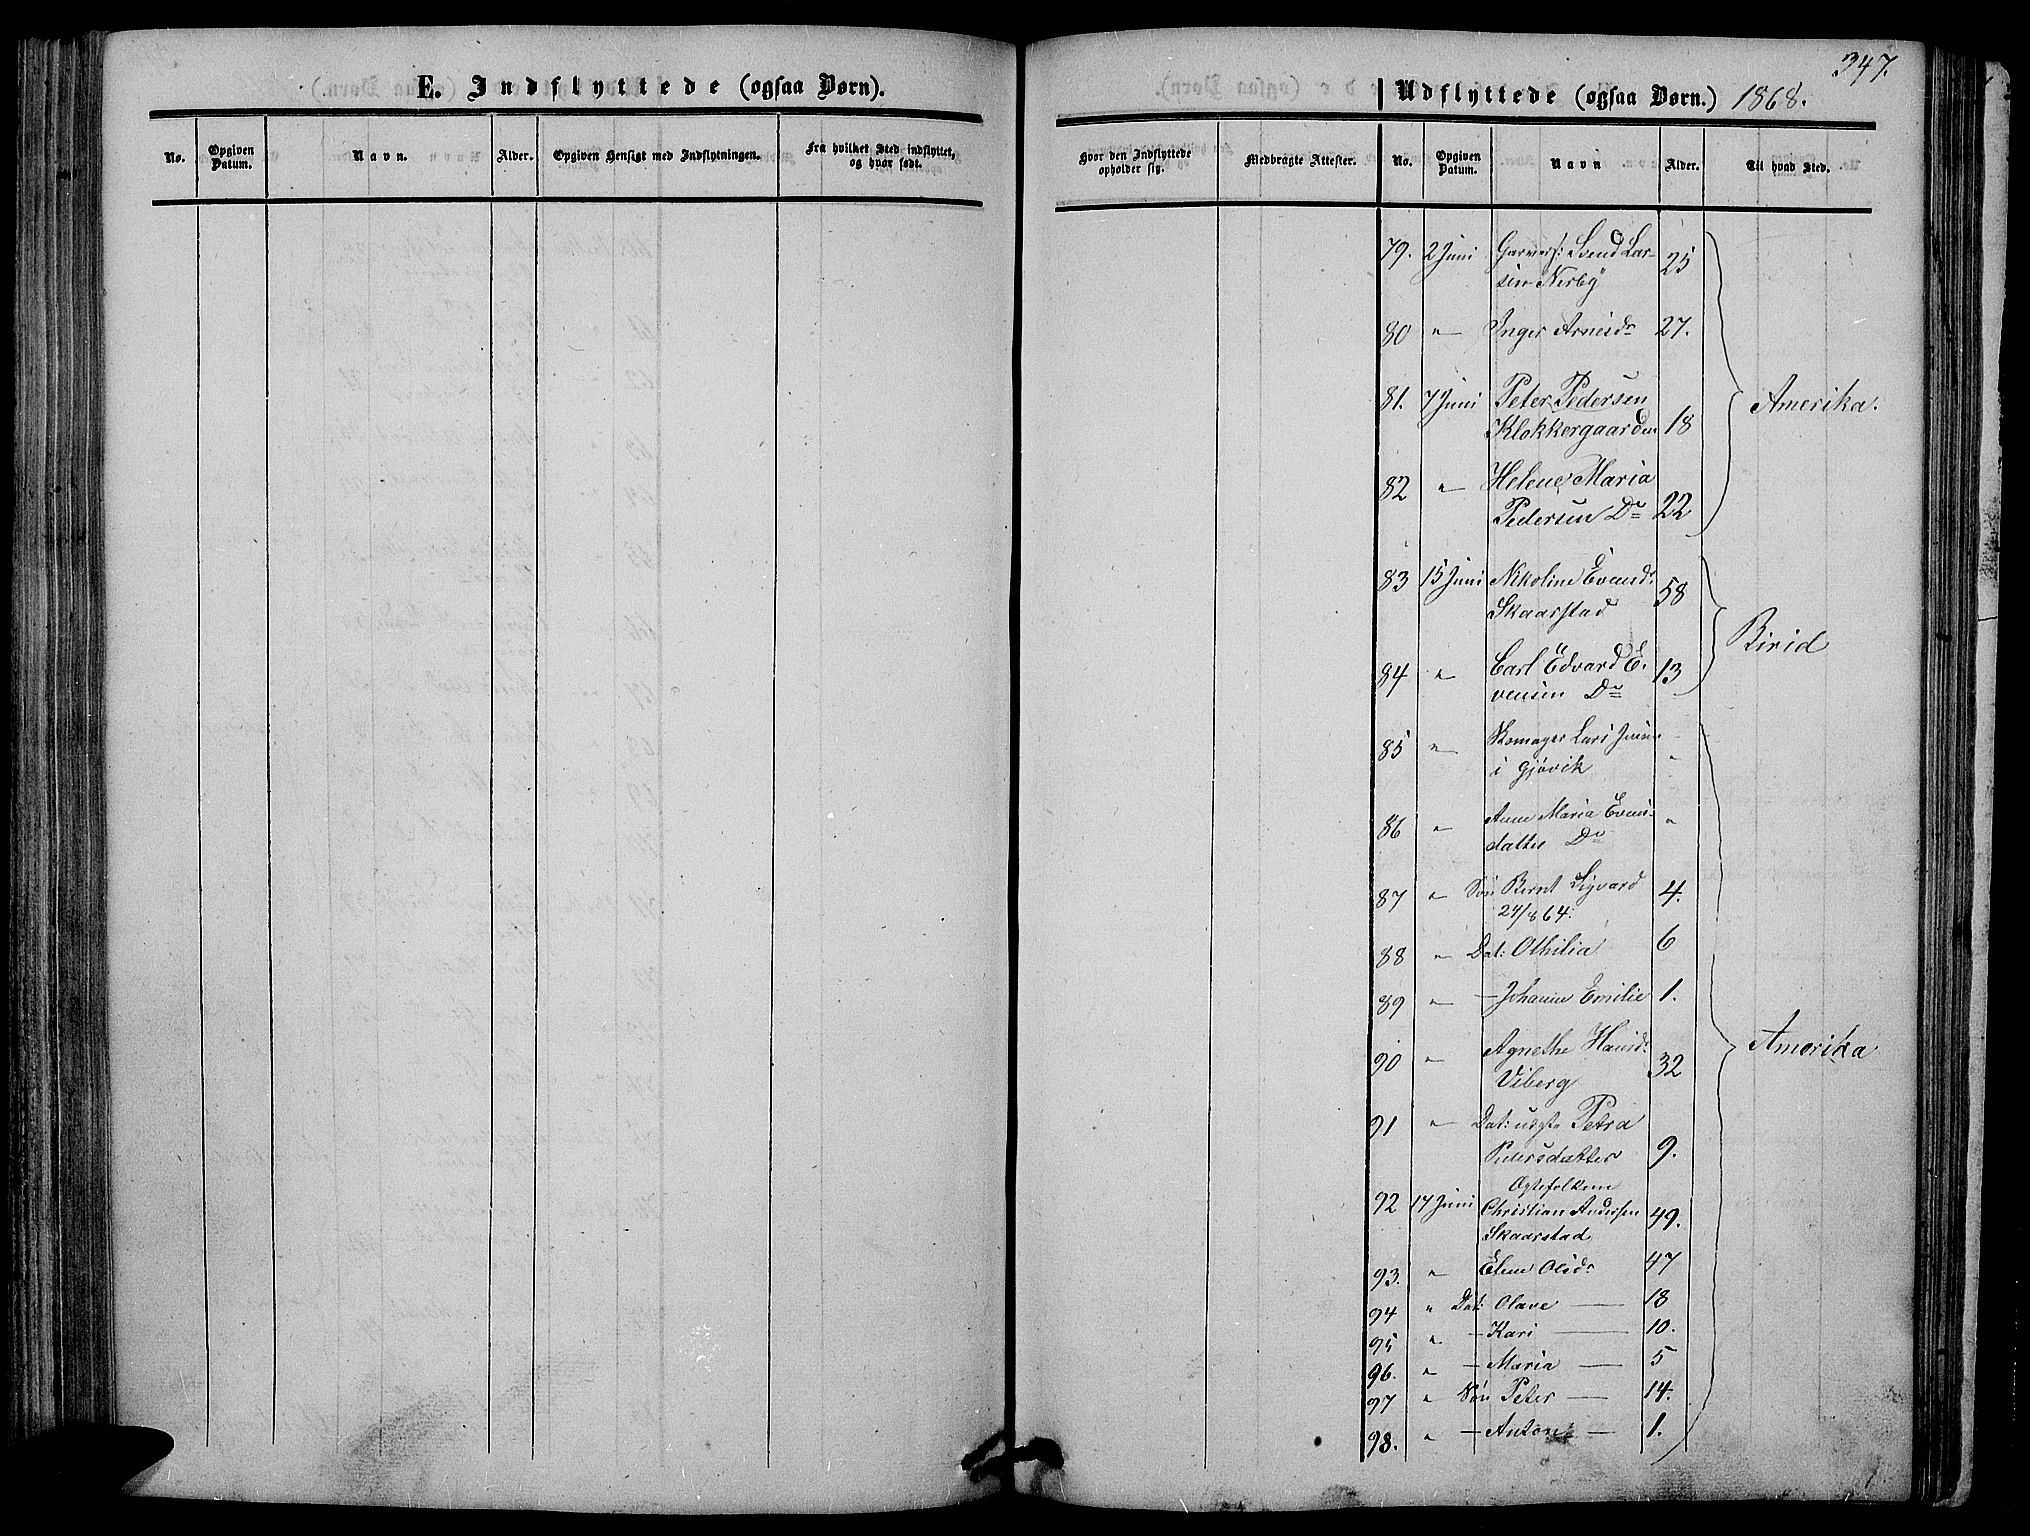 347.
E. Indflyttede (ogsaa Børn).
Udflyttede (ogsaa Børn.) 1868.
No. Opgiven Datum. Navn. Alder. Opgiven Hensigt med Indflytningen. Fra hvilket Sted indflyttet, og hvor født.
Hvor den Indflyttede opholder sig. Medbragte Attester. No. Opgiven Datum. Navn Alder. Til hvad Sted.
79. 2 Juni Garversv: Svend Lar-
sen Nerby 25
80 " Inger Arnesdr 27.
81. 7 Juni Peter Pedersen
Klokkergaarden 18
Amerika.
82 " Helene Maria
Pedersen Do 22
83 15 Juni Nikoline Evensdr
Skaarstad 58
Birid
84 " Carl Edvard E-
vensen Do 13
85 " Skomager Lars
i Gjøvik "
86 " Anne Maria Evens-
datter Do "
87 " Søn Bernt Sigvard 4.
24/8 64.
88 " Dat: Othilia 6
89 " — Johanne Emilie 1.
90 " Agnethe Hansdr
Viberg 32
Amerika
91 " Dat: uægte Petra
Pedersdatter 9.
Egtefolkene
92 17 Juni Christian Andersen
Skaarstad 49.
93. " Elene Olsdr 47
94 " Dat: Olave — 18
95 " — Kari — 10.
96. " — Maria — 5
97 " Søn Peter — 14.
98. " — Anton — 1.